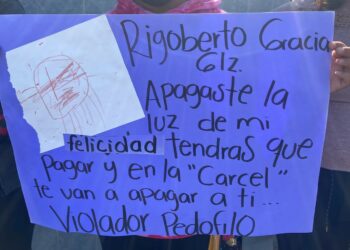 Rigoberto Gracia
Glz.
Apagaste la
luz de mi
felicidad tendras que
pagar y en la "Carcel"
te van a apagar a ti...
Violador Pedofilo